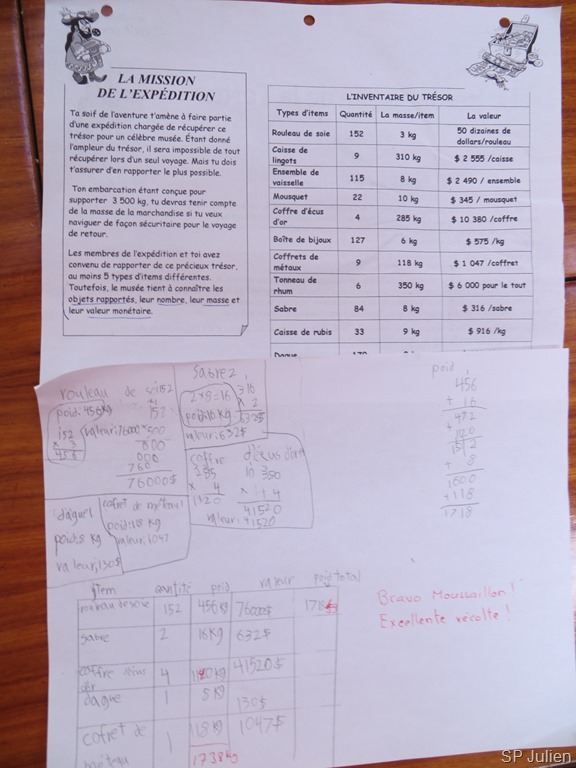 LA MISSION
DE L'EXPÉDITION
Ta soif de l'aventure t'amène à faire partie
d'une expédition chargée de récupérer ce
trésor pour un célèbre musée. Étant donné
l'ampleur du trésor, il sera impossible de tout
récupérer lors d'un seul voyage. Mais tu dois
t'assurer d'en rapporter le plus possible.
Ton embarcation étant conçue pour
supporter 3 500 kg, tu devras tenir compte
de la masse de la marchandise si tu veux
naviguer de façon sécuritaire pour le voyage
de retour.
Les membres de l'expédition et toi avez
convenu de rapporter de ce précieux trésor,
au moins 5 types d'items différentes.
Toutefois, le musée tient à connaître les
objets rapportés, leur nombre, leur masse et
leur valeur monétaire.
L'INVENTAIRE DU TRÉSOR
Types d'items Quantité La masse/item La valeur
Rouleau de soie 152 3 kg 50 dizaines de dollars/rouleau
Caisse de lingots 9 310 kg $ 2 555 /caisse
Ensemble de vaisselle 115 8 kg $ 2 490 / ensemble
Mousquet 22 10 kg $ 345 / mousquet
Coffre d'écus d'or 4 285 kg $ 10 380 /coffre
Boîte de bijoux 127 6 kg $ 575 /kg
Coffrets de métaux 9 118 kg $ 1 047 /coffret
Tonneau de rhum 6 350 kg $ 6 000 pour le tout
Sabre 84 8 kg $ 316 /sabre
Caisse de rubis 33 9 kg $ 916 /kg
Dague
rouleau de
poid: 456kg
valeur: 76000
152
x 3
456
152
000
000
760
76000$
Sabre 2
2x8=16
poid: 16 kg
316
x 2
632$
valeur: 632$
coffre d'écus d'or
285
x 4
x 4
41520
valeur: 41520
dague 1
poid: 8 kg
valeur: 130$
poid: 118 kg
valeur: 1047
poid
456
+ 16
472
+
+ 8
1600
+ 118
1718
item quantité poid valeur poid total
152 456kg 76000$ 1718
sabre 2 16kg 632$
coffre 4 41520$
dague 1 130$
cofret de 1 118 kg 1047$
1738kg
Bravo Moussaillon!
Excellente récolte!
SP Julien